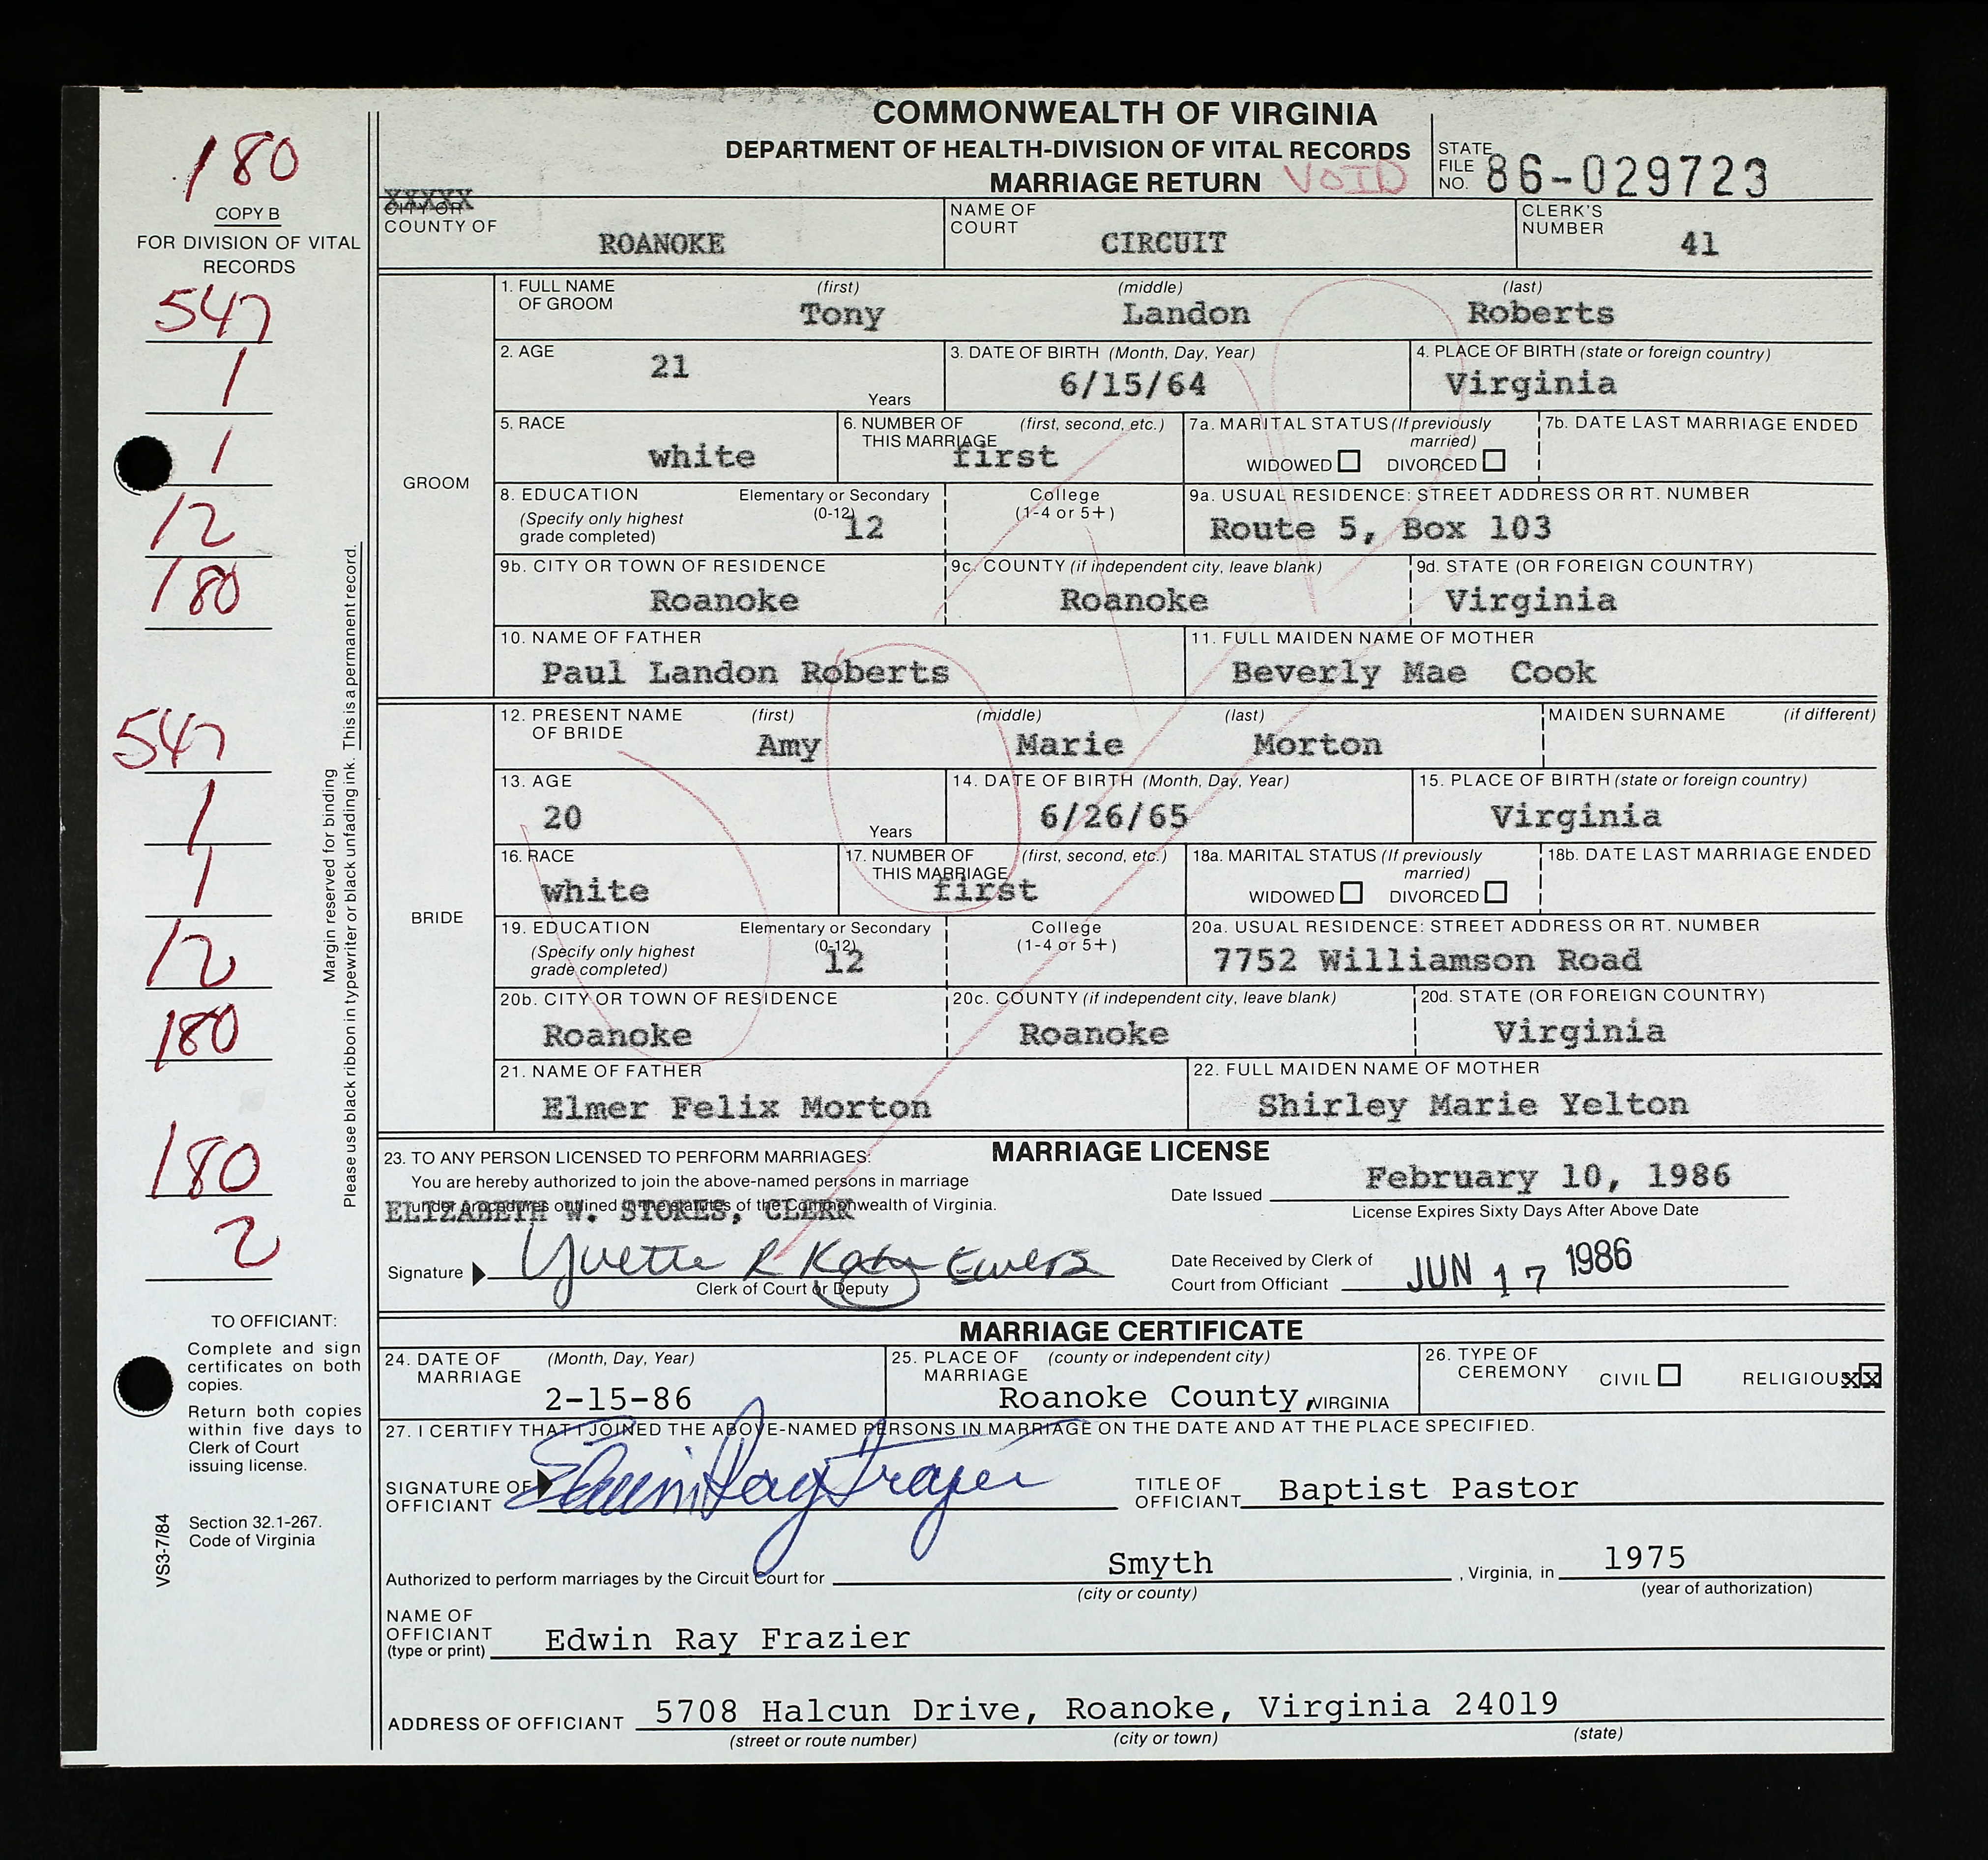 COMMONWEALTH OF VIRGINIA
DEPARTMENT OF HEALTH-DIVISION OF VITAL RECORDS
MARRIAGE RETURN VOID
STATE FILE NO. 86-029723
180
COPY B
FOR DIVISION OF VITAL
RECORDS
547
1
1
12
180
547
1
1
12
180
180
2
Margin reserved for binding
Please use black ribbon in typewriter or black unfading ink. This is a permanent record.
TO OFFICIANT:
Complete and sign
certificates on both
copies.
Return both copies
within five days to
Clerk of Court
issuing license.
Section 32.1-267.
Code of Virginia
VS3-7/84
XXXXX
CITY OR
COUNTY OF ROANOKE
NAME OF COURT CIRCUIT
CLERK'S NUMBER 41
GROOM
1. FULL NAME OF GROOM (first) Tony (middle) Landon (last) Roberts
2. AGE 21 Years
3. DATE OF BIRTH (Month, Day, Year) 6/15/64
4. PLACE OF BIRTH (state or foreign country) Virginia
5. RACE white
6. NUMBER OF THIS MARRIAGE (first, second, etc.) first
7a. MARITAL STATUS (If previously married) WIDOWED DIVORCED
7b. DATE LAST MARRIAGE ENDED
8. EDUCATION (Specify only highest grade completed) Elementary or Secondary (0-12) 12
College (1-4 or 5+)
9a. USUAL RESIDENCE: STREET ADDRESS OR RT. NUMBER Route 5, Box 103
9b. CITY OR TOWN OF RESIDENCE Roanoke
9c. COUNTY (if independent city, leave blank) Roanoke
9d. STATE (OR FOREIGN COUNTRY) Virginia
10. NAME OF FATHER Paul Landon Roberts
11. FULL MAIDEN NAME OF MOTHER Beverly Mae Cook
BRIDE
12. PRESENT NAME OF BRIDE (first) Amy (middle) Marie (last) Morton
MAIDEN SURNAME (if different)
13. AGE 20 Years
14. DATE OF BIRTH (Month, Day, Year) 6/26/65
15. PLACE OF BIRTH (state or foreign country) Virginia
16. RACE white
17. NUMBER OF THIS MARRIAGE (first, second, etc.) first
18a. MARITAL STATUS (If previously married) WIDOWED DIVORCED
18b. DATE LAST MARRIAGE ENDED
19. EDUCATION (Specify only highest grade completed) Elementary or Secondary (0-12) 12
College (1-4 or 5+)
20a. USUAL RESIDENCE: STREET ADDRESS OR RT. NUMBER 7752 Williamson Road
20b. CITY OR TOWN OF RESIDENCE Roanoke
20c. COUNTY (if independent city, leave blank) Roanoke
20d. STATE (OR FOREIGN COUNTRY) Virginia
21. NAME OF FATHER Elmer Felix Morton
22. FULL MAIDEN NAME OF MOTHER Shirley Marie Yelton
MARRIAGE LICENSE
23. TO ANY PERSON LICENSED TO PERFORM MARRIAGES:
You are hereby authorized to join the above-named persons in marriage
under procedures outlined in the statutes of the Commonwealth of Virginia.
ELIZABETH W. STOKES, CLERK
Signature Yvette R
Clerk of Court or Deputy
Date Issued February 10, 1986
License Expires Sixty Days After Above Date
Date Received by Clerk of
Court from Officiant JUN 17 1986
MARRIAGE CERTIFICATE
24. DATE OF MARRIAGE (Month, Day, Year) 2-15-86
25. PLACE OF MARRIAGE (county or independent city) Roanoke County, VIRGINIA
26. TYPE OF CEREMONY CIVIL RELIGIOUS XX
27. I CERTIFY THAT I JOINED THE ABOVE-NAMED PERSONS IN MARRIAGE ON THE DATE AND AT THE PLACE SPECIFIED.
SIGNATURE OF OFFICIANT Edwin Ray Frazier
TITLE OF OFFICIANT Baptist Pastor
Authorized to perform marriages by the Circuit Court for Smyth, Virginia, in 1975
(city or county) (year of authorization)
NAME OF OFFICIANT (type or print) Edwin Ray Frazier
ADDRESS OF OFFICIANT 5708 Halcun Drive, Roanoke, Virginia 24019
(street or route number) (city or town) (state)